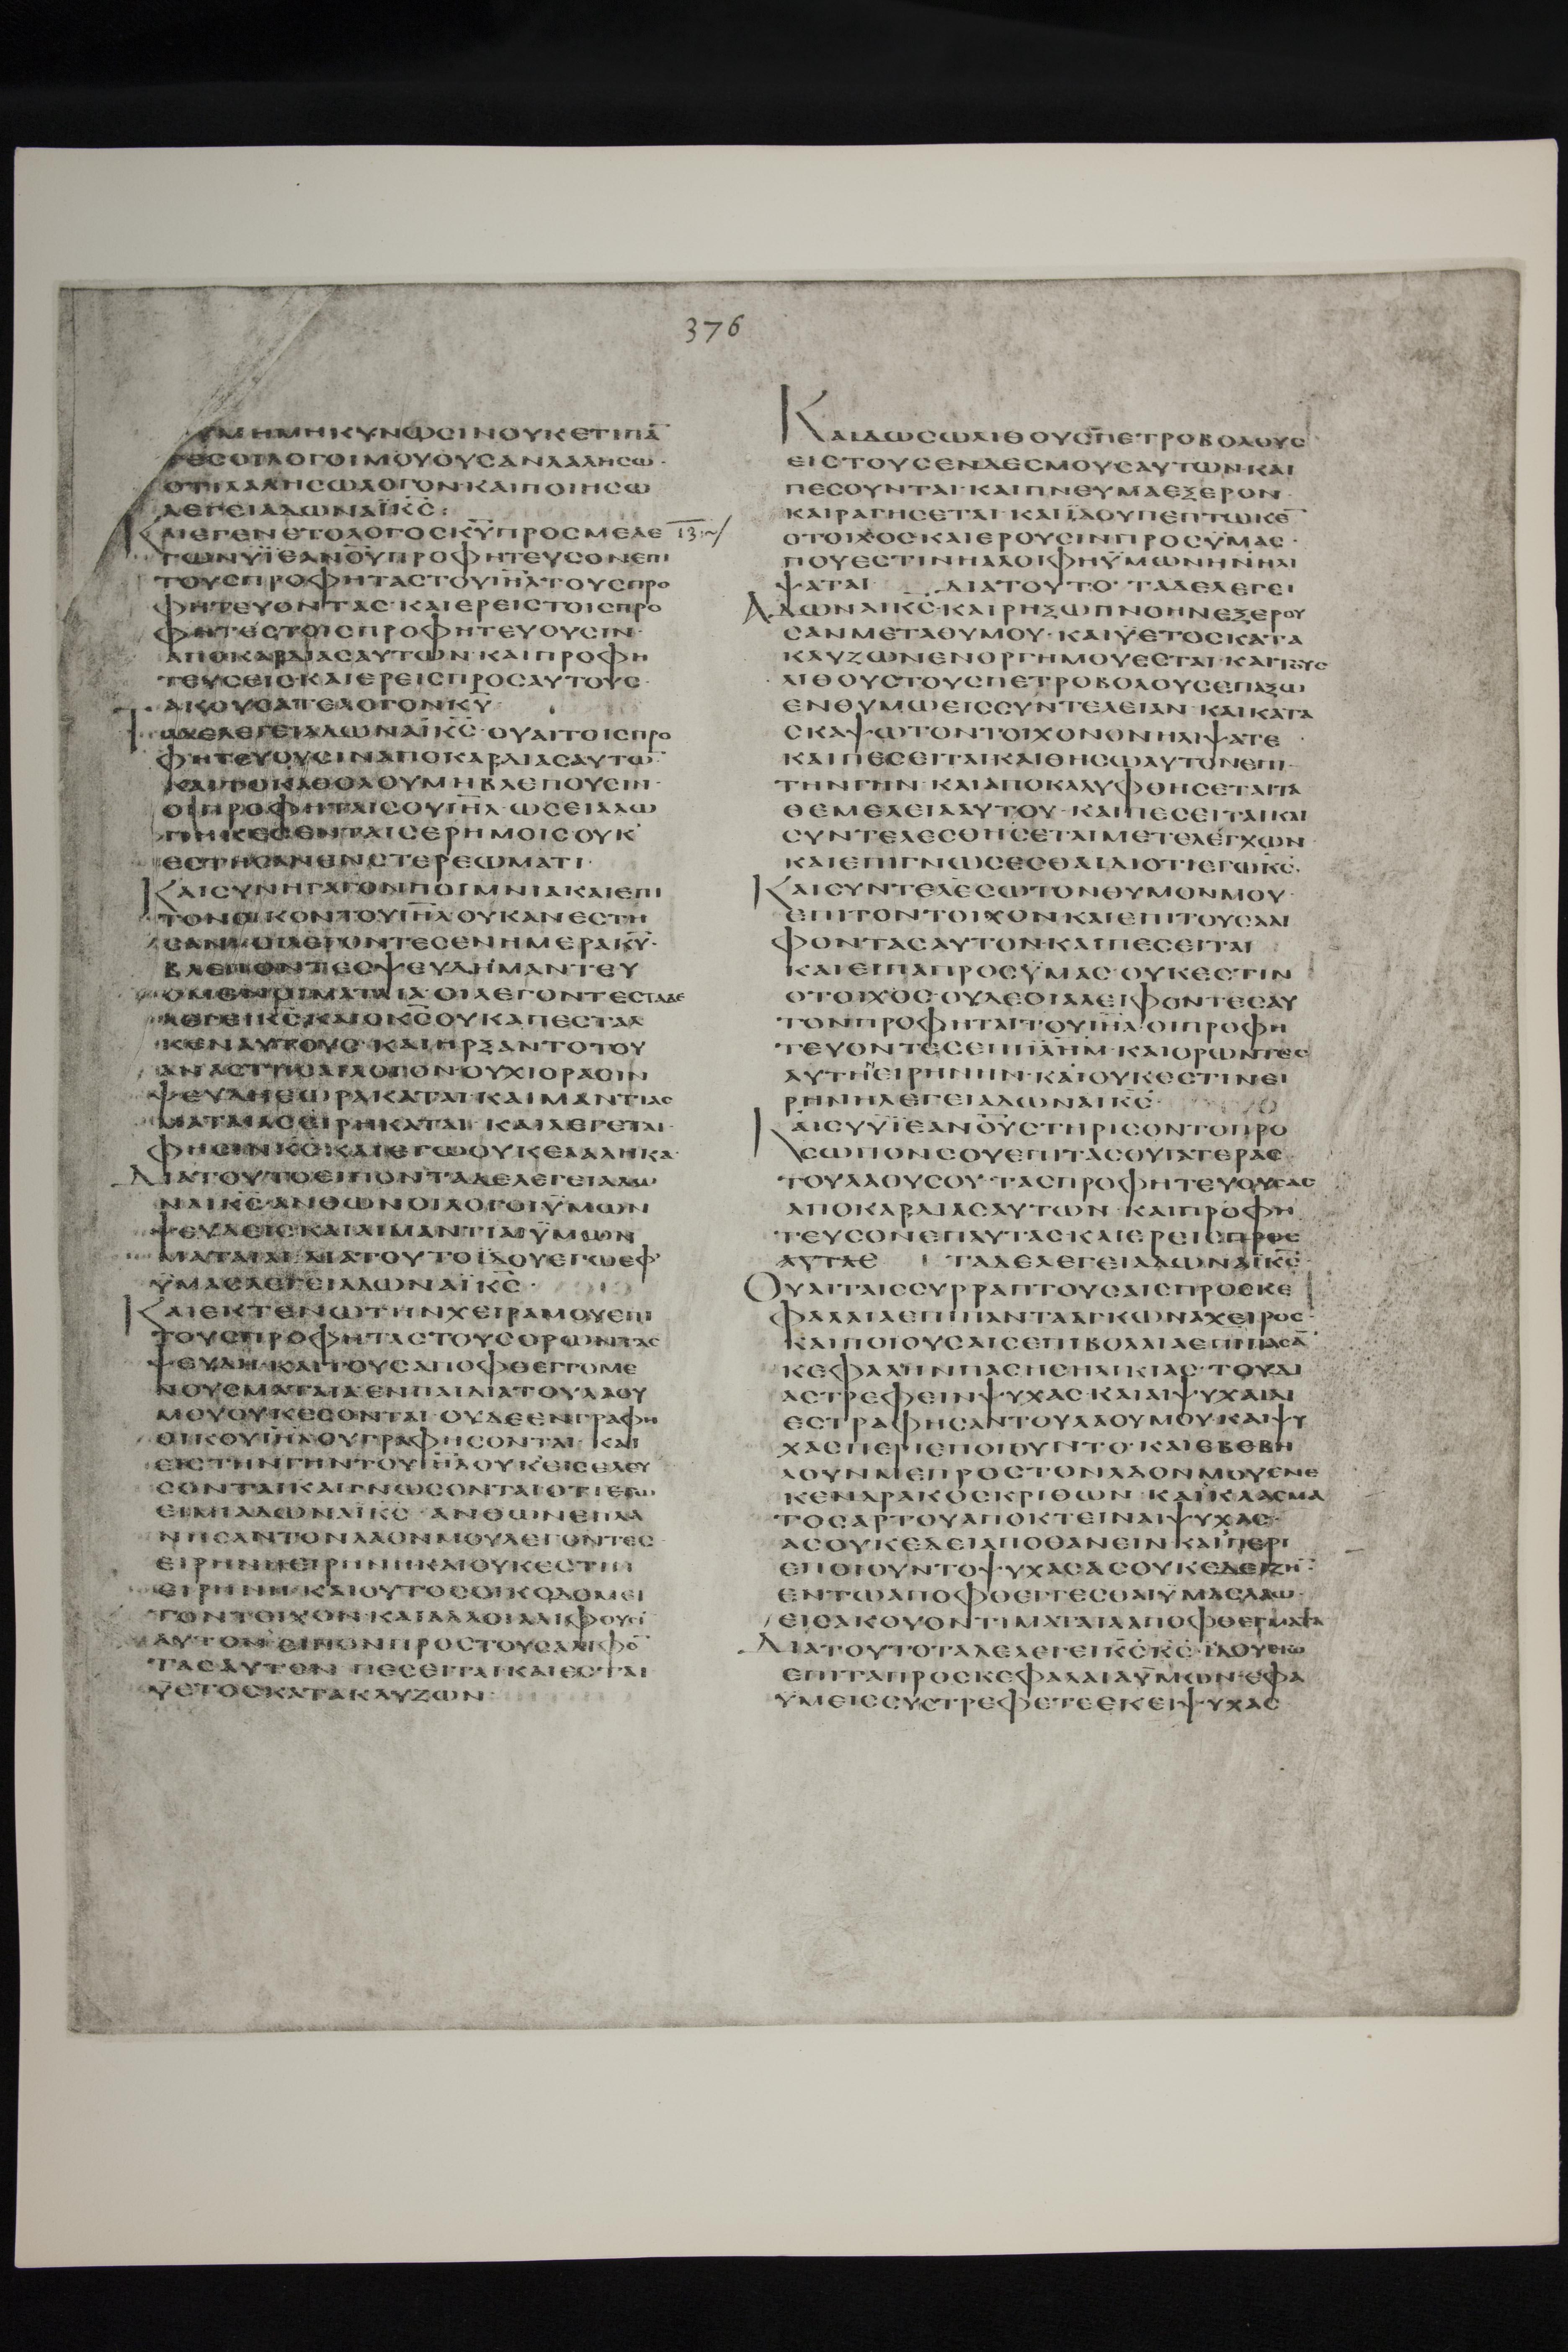 376
ΟΥΜΗΜΗΚΥΝΩCΙΝΟΥΚΕΤΙΠΑ̅
ΤΕCΟΙΛΟΓΟΙΜΟΥΟΥCΑΝΛΑΛΗCΩ·
ΟΤΙΛΑΛΗCΩΛΟΓΟΝ·ΚΑΙΠΟΙΗCΩ
ΛΕΓΕΙΑΔΩΝΑΪΚ̅C̅:
ΚΑΙΕΓΕΝΕΤΟΛΟΓΟCΚ̅Υ̅ΠΡΟCΜΕΛΕ 13:~/
ΓΩΝΥΪΕΑΝ̅Ο̅Υ̅ΠΡΟΦΗΤΕΥCΟΝΕΠΙ
ΤΟΥCΠΡΟΦΗΤΑCΤΟΥΙ̅Η̅Λ̅ΤΟΥCΠΡΟ
ΦΗΤΕΥΟΝΤΑC·ΚΑΙΕΡΕΙCΤΟΙCΠΡΟ
ΦΗΤΕCΤΟΙCΠΡΟΦΗΤΕΥΟΥCΙΝ·
ΑΠΟΚΑΡΔΙΑCΑΥΤΩΝ·ΚΑΙΠΡΟΦΗ
ΤΕΥCΕΙC·ΚΑΙΕΡΕΙCΠΡΟCΑΥΤΟΥC·
ΑΚΟΥCΑΤΕΛΟΓΟΝΚ̅Υ̅
ΤΑΔΕΛΕΓΕΙΑΔΩΝΑΪΚ̅C̅·ΟΥΑΙΤΟΙCΠΡΟ
ΦΗΤΕΥΟΥCΙΝΑΠΟΚΑΡΔΙΑCΑΥΤΩ̅
ΚΑΙΤΟΚΑΘΟΛΟΥΜΗΒΛΕΠΟΥCΙΝ·
ΟΙΠΡΟΦΗΤΑΙCΟΥΙ̅Η̅Λ̅·ΩCΕΙΑΛΩ
ΠΗΚΕCΕΝΤΑΙCΕΡΗΜΟΙCΟΥΚ
ΕCΤΗCΑΝΕΝCΤΕΡΕΩΜΑΤΙ·
ΚΑΙCΥΝΗΓΑΓΟΝΠΟΙΜΝΙΑΚΑΙΕΠΙ
ΤΟΝΟΙΚΟΝΤΟΥΙ̅Η̅Λ̅ΟΥΚΑΝΕCΤΗ
CΑΝ·ΟΙΛΕΓΟΝΤΕCΕΝΗΜΕΡΑΚ̅Υ̅·
ΒΛΕΠΟΝΤΕCΨΕΥΔΗΜΑΝΤΕΥ
ΟΜΕΝΟΙΜΑΤΑΙΑ·ΟΙΛΕΓΟΝΤΕCΤΑΔΕ
ΛΕΓΕΙΚ̅C̅·ΚΑΙΟΚ̅C̅ΟΥΚΑΠΕCΤΑΛ
ΚΕΝΑΥΤΟΥC·ΚΑΙΗΡΞΑΝΤΟΤΟΥ
ΑΝΑCΤΗCΑΙΛΟΓΟΝ·ΟΥΧΙΟΡΑCΙΝ
ΨΕΥΔΗΕΩΡΑΚΑΤΑΙ·ΚΑΙΜΑΝΤΙΑC
ΜΑΤΑΙΑCΕΙΡΗΚΑΤΑΙ·ΚΑΙΛΕΓΕΤΑΙ·
ΦΗCΙΝΚ̅C̅·ΚΑΙΕΓΩΟΥΚΕΛΑΛΗΚΑ·
ΔΙΑΤΟΥΤΟΕΙΠΟΝΤΑΔΕΛΕΓΕΙΑΔΩ
ΝΑΙΚ̅C̅·ΑΝΘΩΝΟΙΛΟΓΟΙΫΜΩΝ
ΨΕΥΔΕΙCΚΑΙΑΙΜΑΝΤΙΑΙΫΜΩΝ
ΜΑΤΑΙΑΙ·ΔΙΑΤΟΥΤΟΪΔΟΥΕΓΩΕΦ
ΫΜΑCΛΕΓΕΙΑΔΩΝΑΪΚ̅C̅·
ΚΑΙΕΚΤΕΝΩΤΗΝΧΕΙΡΑΜΟΥΕΠΙ
ΤΟΥCΠΡΟΦΗΤΑCΤΟΥCΟΡΩΝΤΑC
ΨΕΥΔΗ·ΚΑΙΤΟΥCΑΠΟΦΘΕΓΓΟΜΕ
ΝΟΥCΜΑΤΑΙΑ·ΕΝΠΑΙΔΙΑΤΟΥΛΑΟΥ
ΜΟΥΟΥΚΕCΟΝΤΑΙ·ΟΥΔΕΕΝΓΡΑΦΗ
ΟΙΚΟΥΙ̅Η̅Λ̅ΟΥΓΡΑΦΗCΟΝΤΑΙ·ΚΑΙ
ΕΙCΤΗΝΓΗΝΤΟΥΙ̅Η̅Λ̅ΟΥΚΕΙCΕΛΕΥ
CΟΝΤΑΙ·ΚΑΙΓΝΩCΟΝΤΑΙΟΤΙΕΓΩ
ΕΙΜΙΑΔΩΝΑΪΚ̅C̅·ΑΝΘΩΝΕΠΛΑ
ΝΗCΑΝΤΟΝΛΑΟΝΜΟΥΛΕΓΟΝΤΕC
ΕΙΡΗΝΗΕΙΡΗΝΗΚΑΙΟΥΚΕCΤΙΝ
ΕΙΡΗΝΗ·ΚΑΙΟΥΤΟCΟΙΚΟΔΟΜΕΙ
ΤΟΝΤΟΙΧΟΝ·ΚΑΙΑΛΛΟΙΑΛΙΦΟΥCΙ
ΑΥΤΟΝ·ΕΙΠΟΝΠΡΟCΤΟΥCΑΛΙΦΟ̅
ΤΑCΑΥΤΟΝ·ΠΕCΕΙΤΑΙ·ΚΑΙΕCΤΑΙ
ΫΕΤΟCΚΑΤΑΚΛΥΖΩΝ·
ΚΑΙΔΩCΩΛΙΘΟΥCΠΕΤΡΟΒΟΛΟΥC
ΕΙCΤΟΥCΕΝΔΕCΜΟΥCΑΥΤΩΝ·ΚΑΙ
ΠΕCΟΥΝΤΑΙ·ΚΑΙΠΝΕΥΜΑΕΞΕΡΟΝ·
ΚΑΙΡΑΓΗCΕΤΑΙ·ΚΑΙΪΔΟΥΠΕΠΤΩΚΕ̅
ΟΤΟΙΧΟCΚΑΙΕΡΟΥCΙΝΠΡΟCΫΜΑC·
ΠΟΥΕCΤΙΝΗΑΛΟΙΦΗΫΜΩΝΗΝΗΛΙ
ΨΑΤΑΙ ΔΙΑΤΟΥΤΟ·ΤΑΔΕΛΕΓΕΙ
ΑΔΩΝΑΙΚ̅C̅·ΚΑΙΡΗΞΩΠΝΟΗΝΕΞΕΡΟΥ
CΑΝΜΕΤΑΘΥΜΟΥ·ΚΑΙΫΕΤΟCΚΑΤΑ
ΚΛΥΖΩΝΕΝΟΡΓΗΜΟΥΕCΤΑΙ·ΚΑΙΤΟΥC
ΛΙΘΟΥCΤΟΥCΠΕΤΡΟΒΟΛΟΥCΕΠΑΞΩ
ΕΝΘΥΜΩΕΙCCΥΝΤΕΛΕΙΑΝ·ΚΑΙΚΑΤΑ
CΚΑΨΩΤΟΝΤΟΙΧΟΝΟΝΗΛΙΨΑΤΕ·
ΚΑΙΠΕCΕΙΤΑΙ·ΚΑΙΘΗCΩΑΥΤΟΝΕΠΙ
ΤΗΝΓΗΝ·ΚΑΙΑΠΟΚΑΛΥΦΘΗCΕΤΑΙΤΑ
ΘΕΜΕΛΕΙΑΑΥΤΟΥ·ΚΑΙΠΕCΕΙΤΑΙΚΑΙ
CΥΝΤΕΛΕCΘΗCΕΤΑΙΜΕΤΕΛΕΓΧΩΝ·
ΚΑΙΕΠΙΓΝΩCΕCΘΑΙΔΙΟΤΙΕΓΩΚ̅C̅.
ΚΑΙCΥΝΤΕΛΕCΩΤΟΝΘΥΜΟΝΜΟΥ·
ΕΠΙΤΟΝΤΟΙΧΟΝΚΑΙΕΠΙΤΟΥCΑΛΙ
ΦΟΝΤΑCΑΥΤΟΝ·ΚΑΙΠΕCΕΙΤΑΙ
ΚΑΙΕΙΠΑΠΡΟCΫΜΑC·ΟΥΚΕCΤΙΝ
ΟΤΟΙΧΟC·ΟΥΔΕΟΙΑΛΕΙΦΟΝΤΕCΑΥ
ΤΟΝΠΡΟΦΗΤΑΙΤΟΥΙ̅Η̅Λ̅·ΟΙΠΡΟΦΗ
ΤΕΥΟΝΤΕCΕΠΙΙ̅Λ̅Η̅Μ̅·ΚΑΙΟΡΩΝΤΕC
ΑΥΤΗΕΙΡΗΝΗΝ·ΚΑΙΟΥΚΕCΤΙΝΕΙ
ΡΗΝΗΛΕΓΕΙΑΔΩΝΑΙΚ̅C̅·
ΚΑΙCΥΥΪΕΑΝ̅Ο̅Υ̅CΤΗΡΙCΟΝΤΟΠΡΟ
CΩΠΟΝCΟΥΕΠΙΤΑCΘΥΓΑΤΕΡΑC
ΤΟΥΛΑΟΥCΟΥ·ΤΑCΠΡΟΦΗΤΕΥΟΥCΑC
ΑΠΟΚΑΡΔΙΑCΑΥΤΩΝ·ΚΑΙΠΡΟΦΗ
ΤΕΥCΟΝΕΠΑΥΤΑC·ΚΑΙΕΡΕΙCΠΡΟC
ΑΥΤΑC ΤΑΔΕΛΕΓΕΙΑΔΩΝΑΪΚ̅C̅·
ΟΥΑΙΤΑΙCCΥΡΡΑΠΤΟΥCΑΙCΠΡΟCΚΕ
ΦΑΛΑΙΑΕΠΙΠΑΝΤΑΑΓΚΩΝΑΧΕΙΡΟC·
ΚΑΙΠΟΙΟΥCΑΙCΕΠΙΒΟΛΑΙΑΕΠΙΠΑCΑ̅
ΚΕΦΑΛΗΝΠΑCΗCΗΛΙΚΙΑC·ΤΟΥΔΙ
ΑCΤΡΕΦΕΙΝΨΥΧΑC·ΚΑΙΑΙΨΥΧΑΙΔΙ
ΕCΤΡΑΦΗCΑΝΤΟΥΛΑΟΥΜΟΥ·ΚΑΙΨΥ
ΧΑCΠΕΡΙΕΠΟΙΟΥΝΤΟ·ΚΑΙΕΒΕΒΗ
ΛΟΥΝΜΕΠΡΟCΤΟΝΛΑΟΝΜΟΥΕΝΕ
ΚΕΝΔΡΑΚΟCΚΡΙΘΩΝ·ΚΑΙΚΛΑCΜΑ
ΤΟCΑΡΤΟΥΑΠΟΚΤΕΙΝΑΙΨΥΧΑC·
ΑCΟΥΚΕΔΕΙΑΠΟΘΑΝΕΙΝ·ΚΑΙΠΕΡΙ
ΕΠΟΙΟΥΝΤΟΨΥΧΑCΑCΟΥΚΕΔΕΙΖΗ̅·
ΕΝΤΩΑΠΟΦΘΕΓΓΕCΘΑΙΫΜΑCΛΑΩ·
ΕΙCΑΚΟΥΟΝΤΙΜΑΤΑΙΑΑΠΟΦΘΕΓΜΑΤΑ
ΔΙΑΤΟΥΤΟΤΑΔΕΛΕΓΕΙΚ̅C̅Κ̅C̅·ΪΔΟΥΕΓΩ
ΕΠΙΤΑΠΡΟCΚΕΦΑΛΑΙΑΫΜΩΝ·ΕΦΑ
ΫΜΕΙCCΥCΤΡΕΦΕΤΕΕΚΕΙΨΥΧΑC